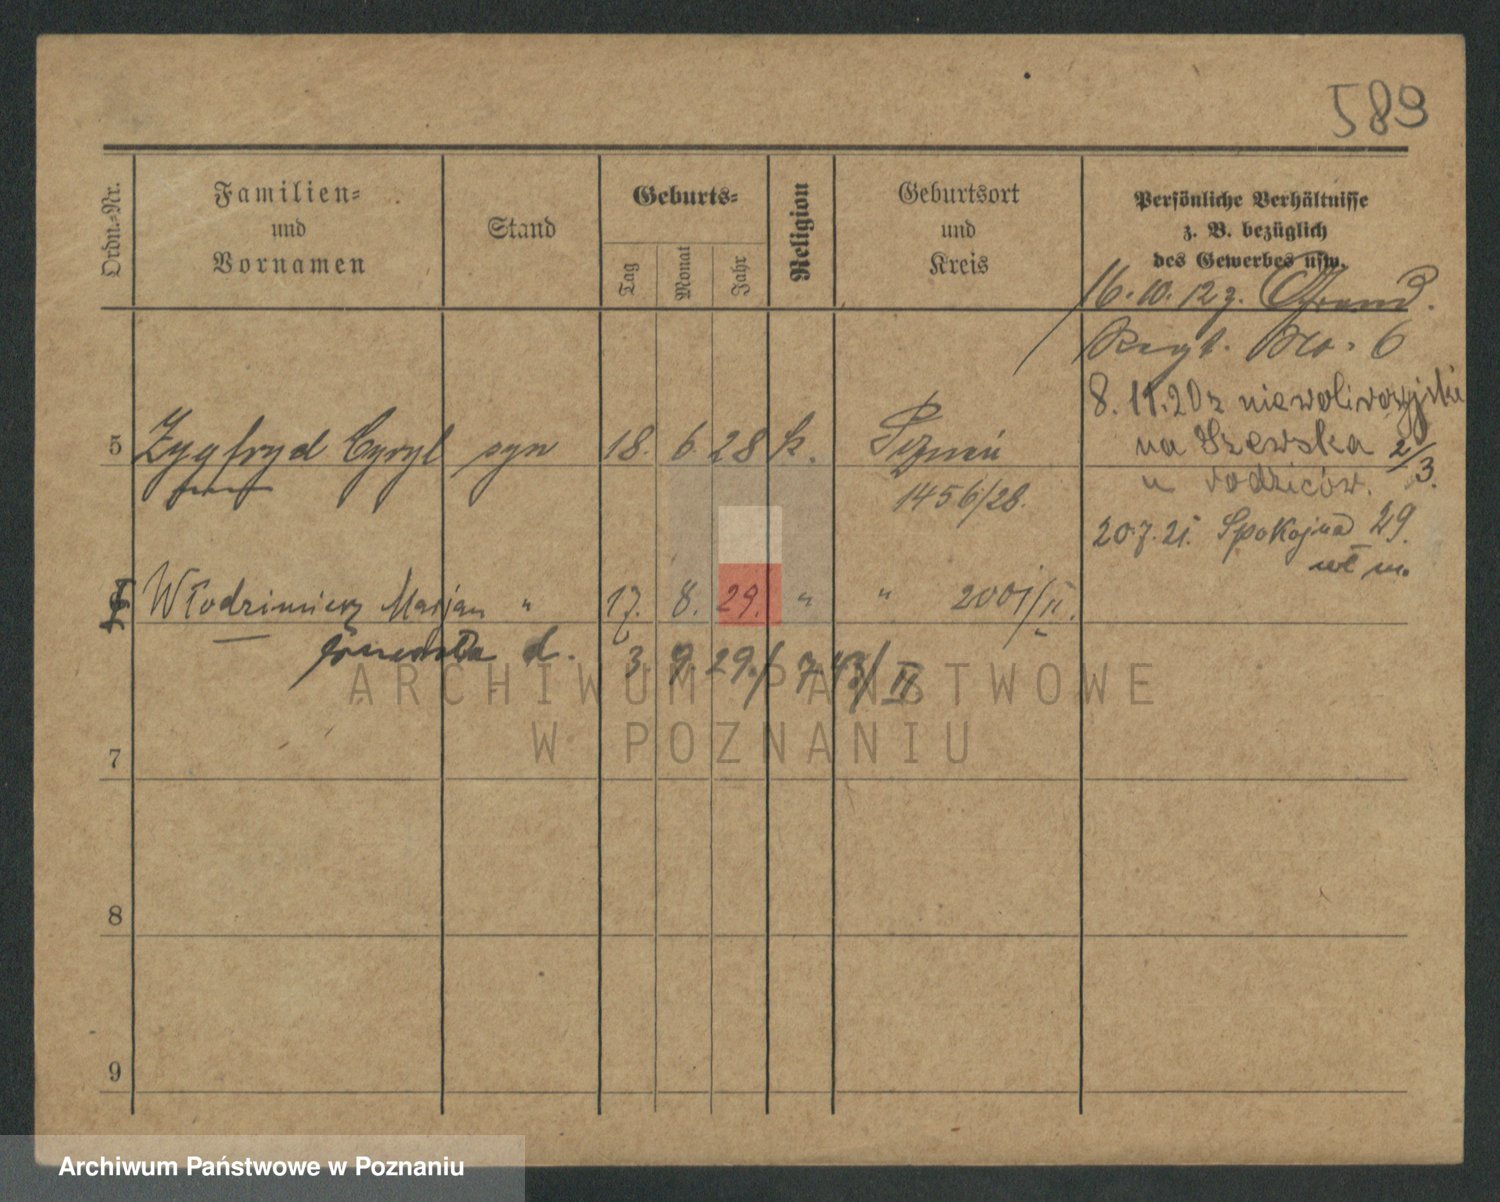 589
Ordn.-Nr.
Familien-
und
Vornamen
Stand
Geburts-
Tag
Monat
Jahr
Religion
Geburtsort
und
Kreis
Persönliche Verhältnisse
z. B. bezüglich
des Gewerbes usw.
16. 10. 12 z.
Regt. No. 6
8. 11. 20 z niewoli rosyjskiej
na Szewska 2/3.
u rodziców.
5 Zygfryd Cyryl syn 18. 6. 28 k.
1456/28.
20.7.21. Spokojna 29.
wł m.
Włodzimierz Marjan " 17. 8. 29. " " 2001/II.
zmarła d. 3 9 29. / 743/II
7
8
9
ARCHIWUM PAŃSTWOWE
W POZNANIU
Archiwum Państwowe w Poznaniu